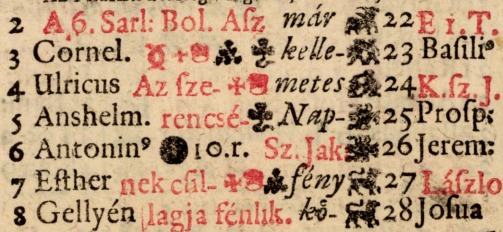 2 A,6. Sarl: Bol. Aſz már 22 E 1 T.
3 Cornel. kelle- 23 Baſiliꝰ
4 Ulricus Az ſze- metes 24 K.ſz.J.
5 Anshelm. rencsé- Nap- 25 Proſp:
6 Antoninꝰ 10.r. Sz. Jak. 26 Jerem:
7 Eſther nek cſil- fény 27 Láſzlo
8 Gellyén lagja fénlık. kö- 28 Joſua